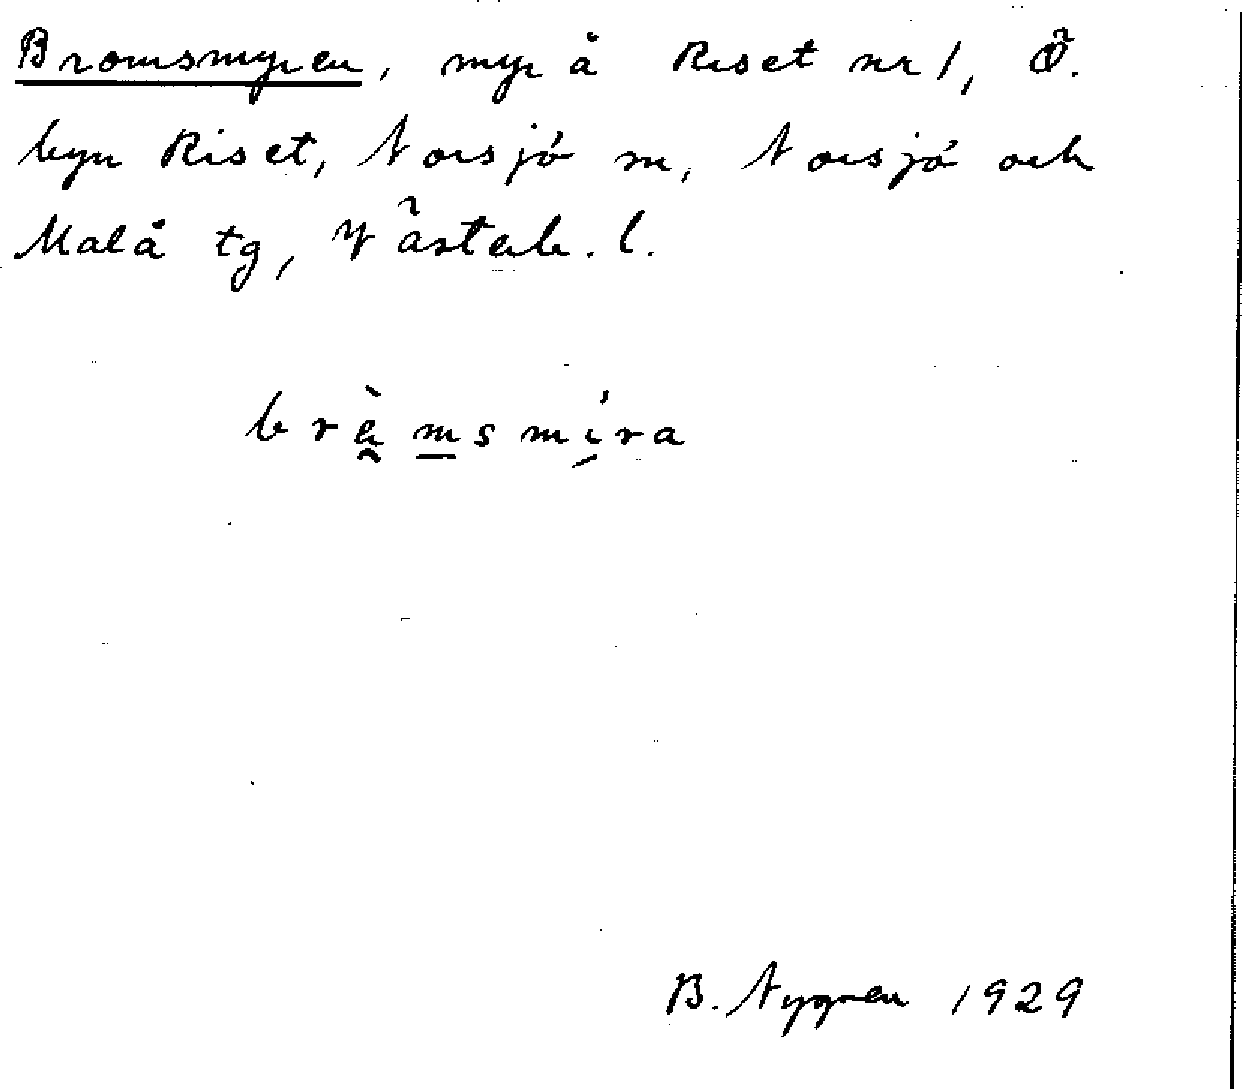 Bromsmyren, myr å Riset nr 1, Ö.
byn Riset, Norsjö sn, Norsjö och
Malå tg, Västerb. l.
brämsmira
B. Nygren 1929